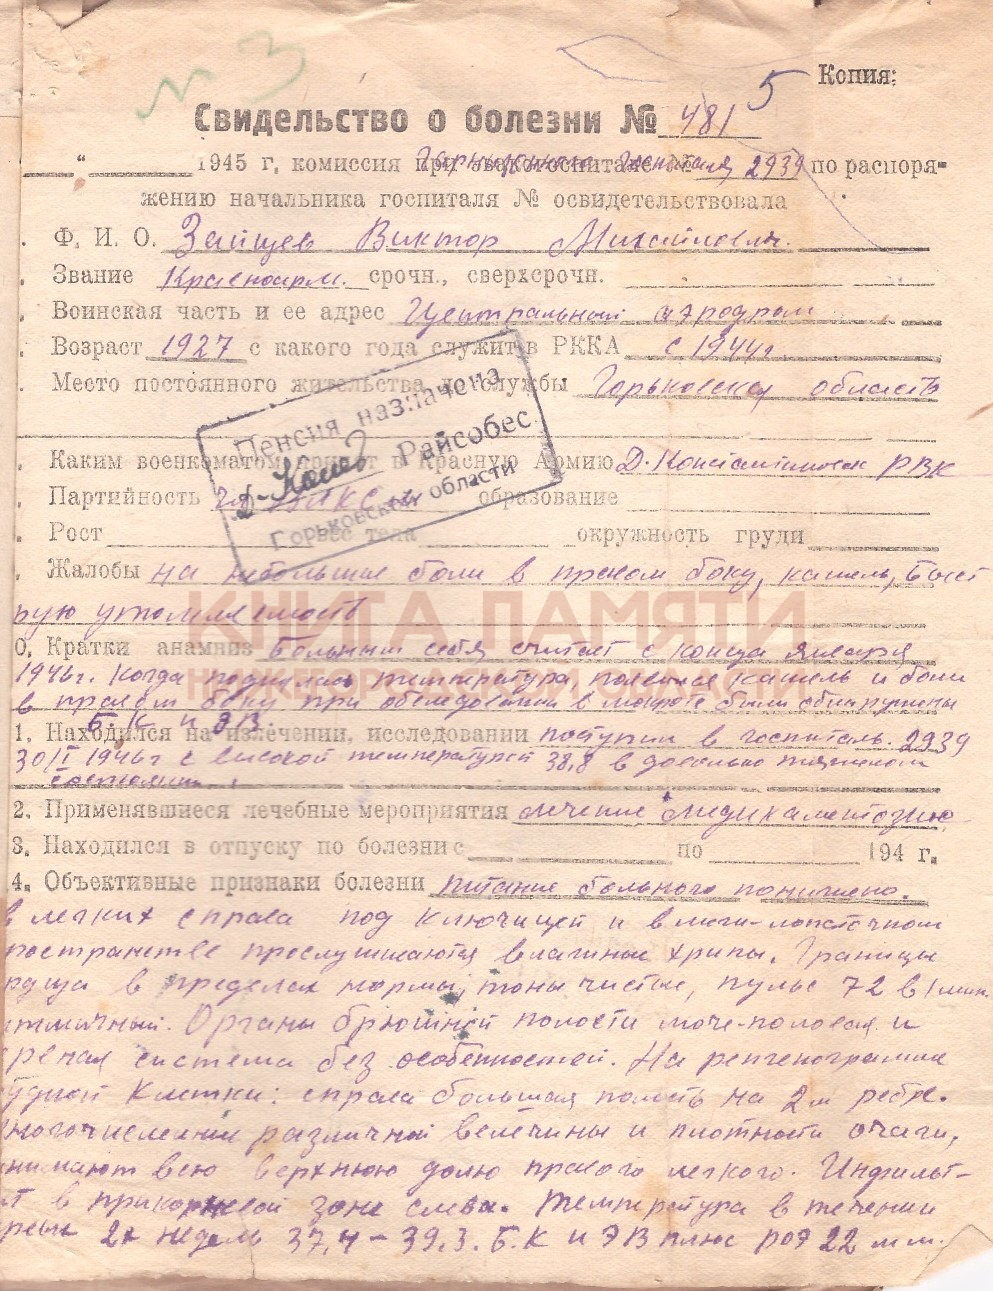 № 3
Копия:
5
Свидельство о болезни № 481
“ 1945 г, комиссия при эвакогоспитале № 2939 по распоря-
жению начальника госпиталя № освидетельствовала
Ф. И. О. Зайцев Виктор Михайлович.
Звание Красноарм. срочн., сверхсрочн.
Воинская часть и ее адрес Центральный аэродром
Возраст 1927 с какого года служит в РККА с 1944г
Место постоянного жительства и службы Горьковская область
Пенсия назначена
Каким военкоматом принят в Красную Армию Д. Константиновск РВК
Райсобес
Партийность чл ВЛКСМ образование
Горьковской области
Рост Вес тела окружность груди
Жалобы на небольшие боли в правом боку, кашель, быст
рую утомляемость
КНИГА ПАМЯТИ
0. Кратки анамниз Больным себя считает с конца января
НИЖЕГОРОДСКОЙ ОБЛАСТИ
1946г. когда поднялась температура, появился кашель и боли
в правом боку при обследовании в мокроте были обнаружены
БК и ЭВ
1. Находился на излечении, исследовании поступил в госпиталь 2939
30/I 1946г с высокой температурой 38,8 в довольно тяжелом
состоянии.
2. Применявшиеся лечебные мероприятия лечение медикаментозное
3. Находился в отпуску по болезни с по 194 г.
4. Объективные признаки болезни питание больного понижено.
В легких справа под ключицей и в межи-лопаточном
ространстве прослушиваются влажные хрипы. Границы
рдца в пределах нормы, тоны чистые, пульс 72 в 1 мин.
итмичный. Органы брюшной полости моче-половая и
рвная система без особенностей. На ренгенограмме
удной клетки: справа большая полость на 2м ребре.
ногочисленные различной величины и плотности очаги,
нимают всю верхнюю долю правого легкого. Инфильт-
ат в прикорневой зоне слева. Температура в течении
рвых 2х недель 37,4-39,3. Б.К и ЭВ плюс РОЭ 22 мм.